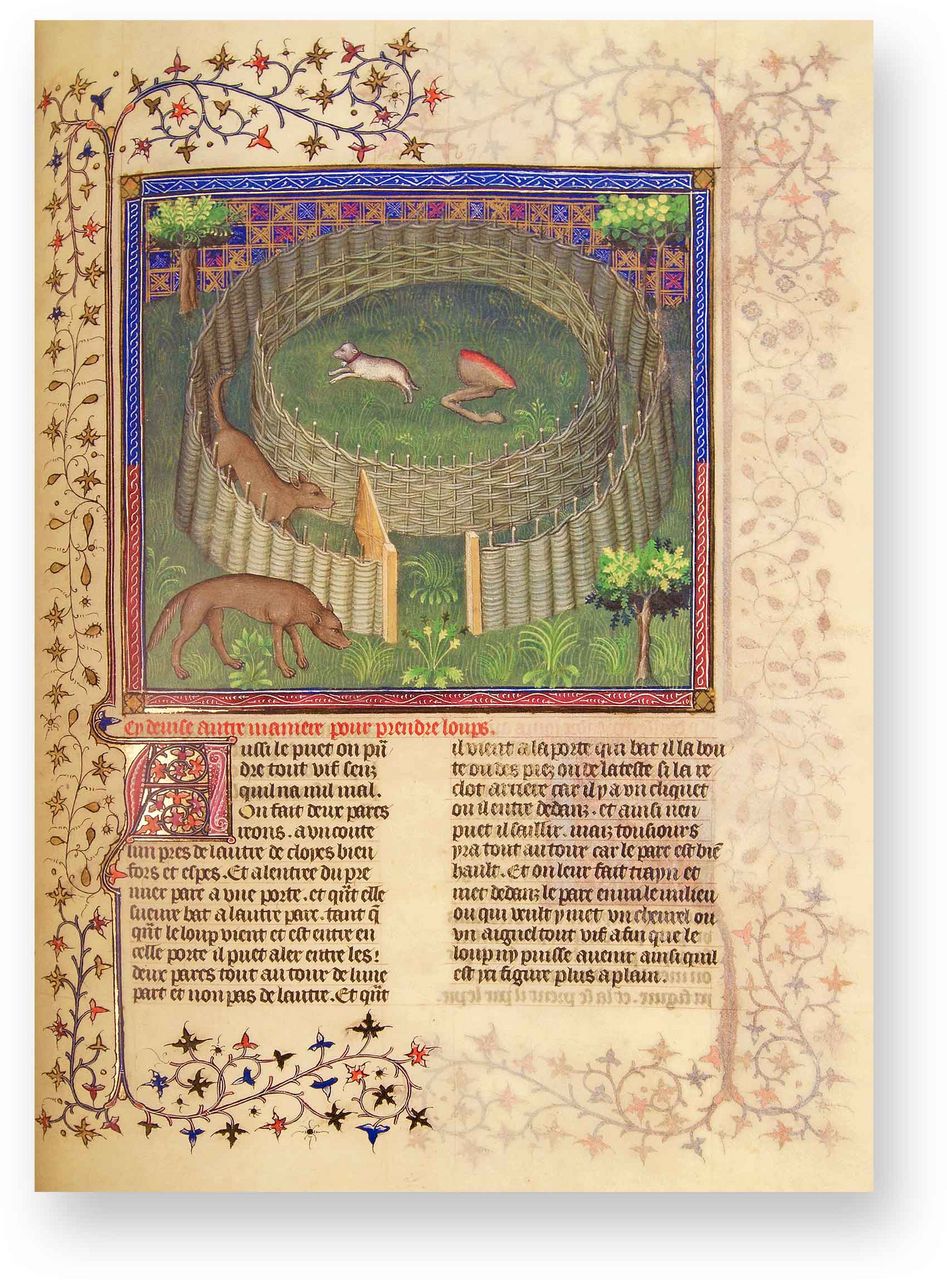 Cy deuise autre maniere pour prendre loups.
Aussi le puet on pñ
dre tout vif senz
quil na mil mal.
On fait deux parcs
irons. a vn coute
lun pres de lautre de cloyes bien
fors et espes. Et alentree du pre
mier parc a vne porte. et qñt elle
sueure bat a lautre parc. tant q̃
qñt le loup vient et est entre en
celle porte il puet aler entre les
deux parcs tout au tour de lune
part et non pas de lautre. Et qñt
il vient a la porte qui bat il la bou
te ou des piez ou de la teste si la re
clot arriere car il y a vn cliquet
ou il entre dedanz. et ainsi nen
puet il saillir. maiz tousiours
yra tout autour car le parc est biẽ
hault. Et on leur fait trayn et
met dedanz le parc enmi le milieu
ou qui veult y met vn cheurel ou
vn aignel tout vif a fin que le
loup ny puisse auenir ainsi quil
est yci figure plus a plain.